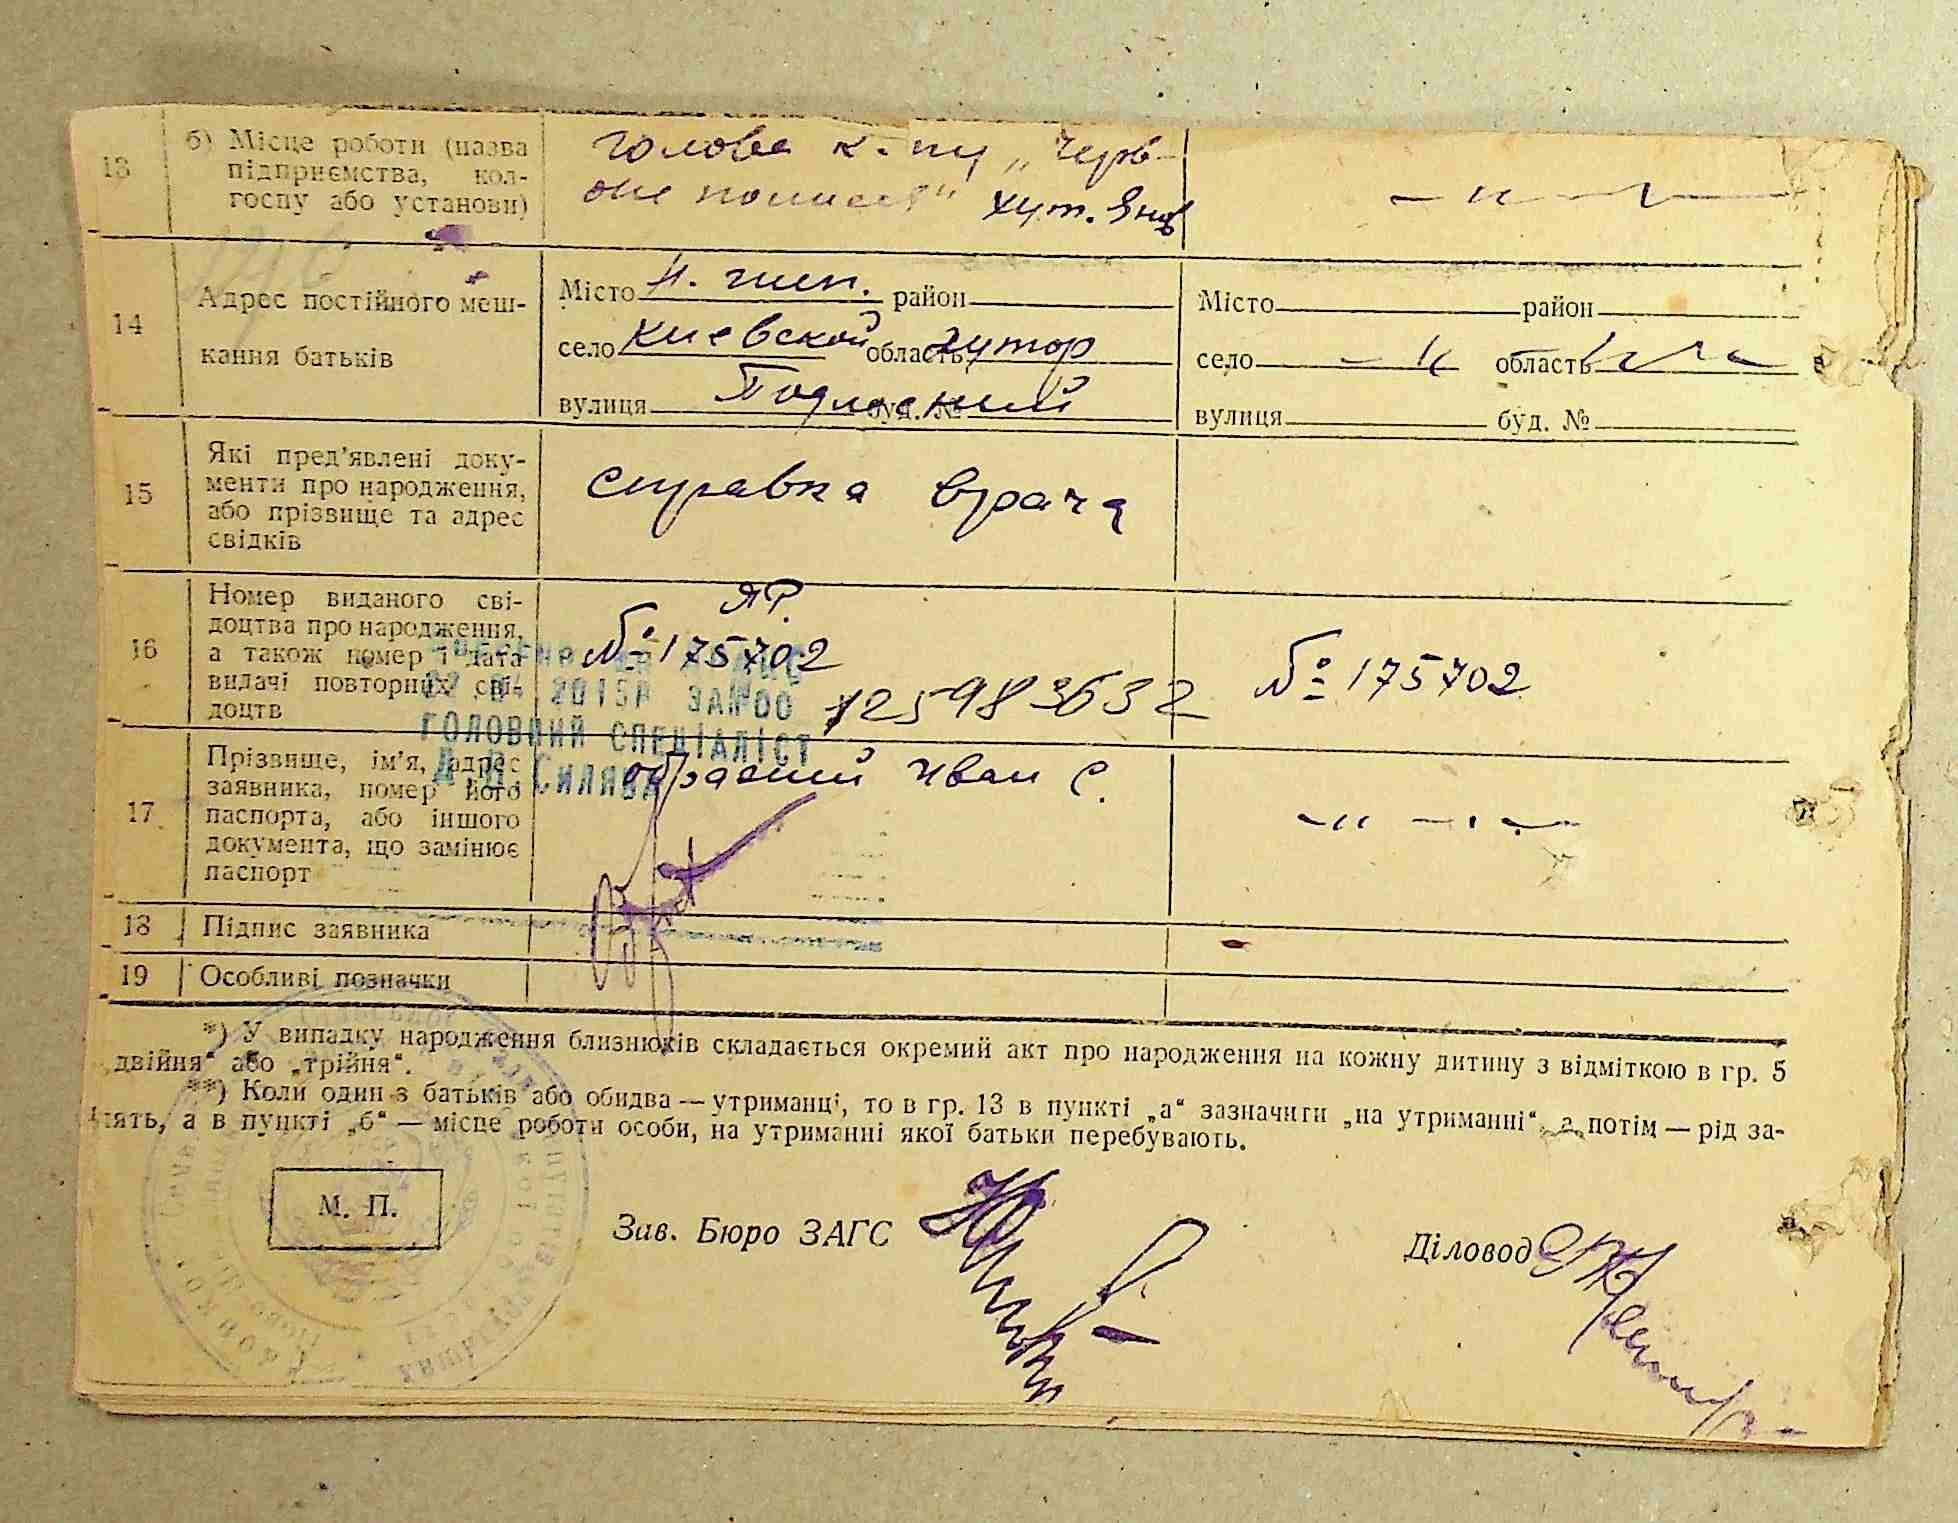 13
б) Місце роботи (назва
підприємства, кол-
госпу або установи)
голова к-пу „Черв-
хут. Янів
— " —
14
Адрес постійного меш-
кання батьків
Місто район
село Киевской область хутор
вулиця буд. №
Місто район
село — " область
вулиця буд. №
15
Які пред'явлені доку-
менти про народження,
або прізвище та адрес
свідків
справка врача
16
Номер виданого сві-
доцтва про народження,
а також номер і дата
видачі повторних сві-
доцтв
ЯР.
№ 175702
№ 175702
2015Р ЗА №00
ГОЛОВНИЙ СПЕЦІАЛІСТ
17
Прізвище, ім'я, адрес
заявника, номер його
паспорта, або іншого
документа, що замінює
паспорт
Иван С.
— " —
18 Підпис заявника
19 Особливі позначки
*) У випадку народження близнюків складається окремий акт про народження на кожну дитину з відміткою в гр. 5
„двійня“ або „трійня“.
**) Коли один з батьків або обидва — утриманці, то в гр. 13 в пункті „а“ зазначити „на утриманні“, а потім — рід за-
нять, а в пункті „б“ — місце роботи особи, на утриманні якої батьки перебувають.
М. П.
Зав. Бюро ЗАГС
Діловод